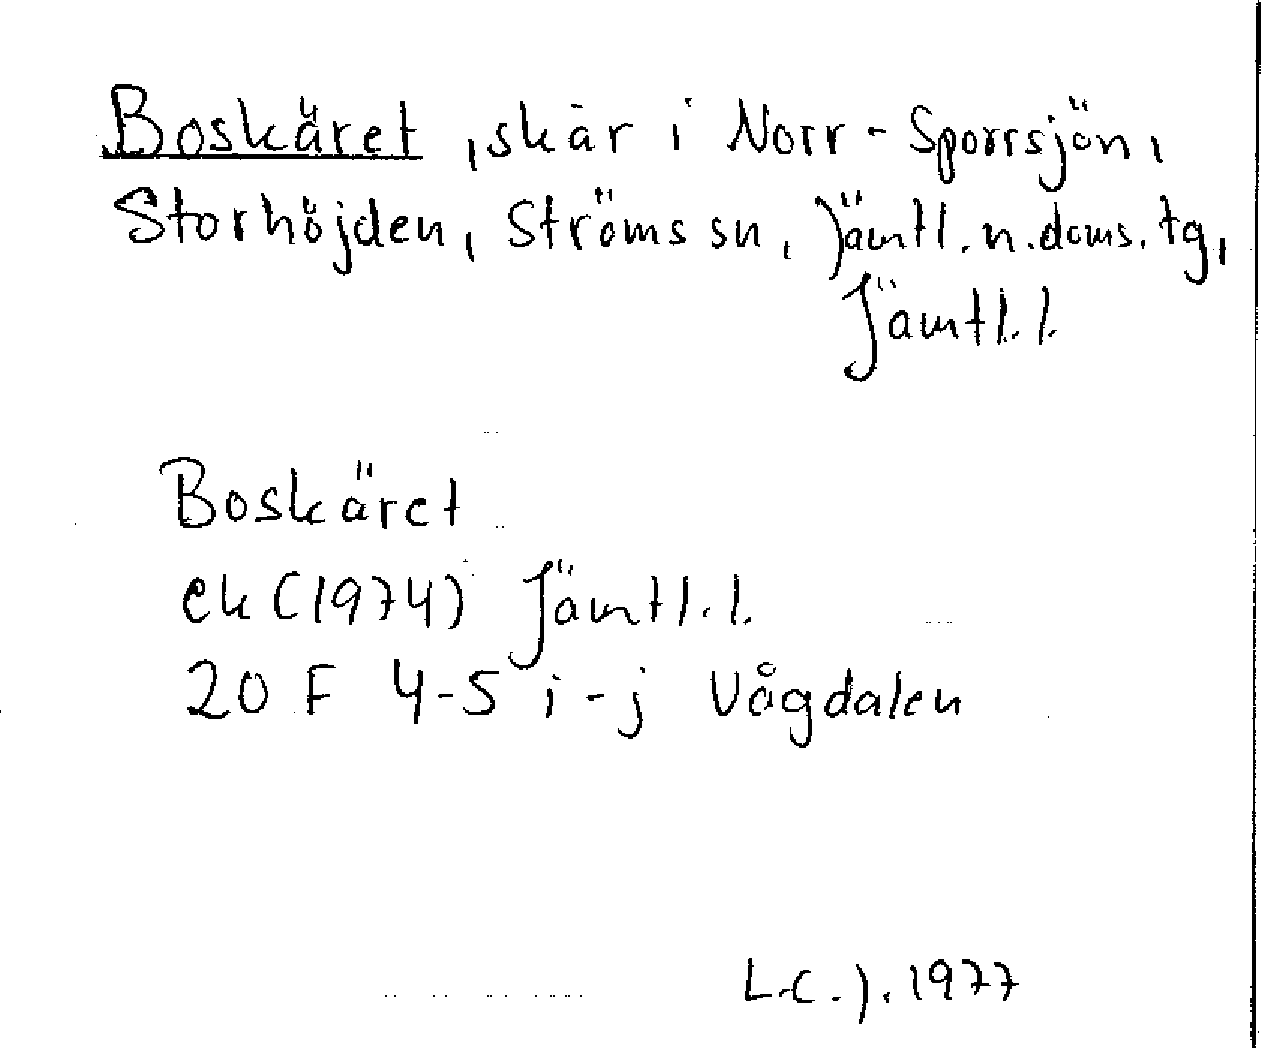 Boskäret, skär i Norr-Sporrsjön,
Storhöjden, Ströms sn, Jämtl. n. doms. tg,
Jämtl. l.
Boskäret
ek (1974) Jämtl. l.
20 F 4-5 i-j Vågdalen
L.C.J. 1977